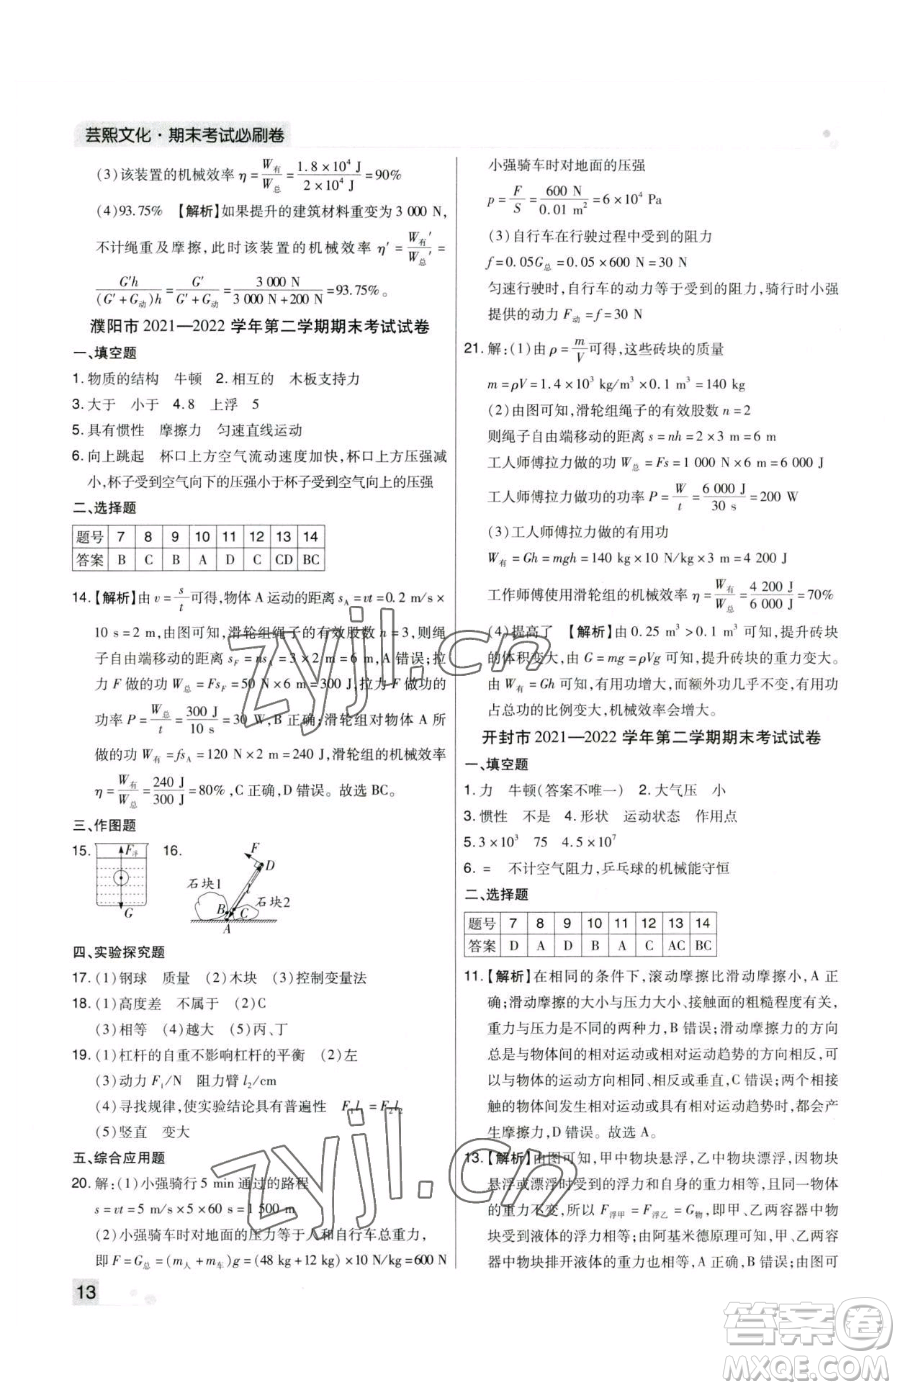 芸熙文化·期末考试必刷卷
(3)该装置的机械效率 η=W有/W总=1.8×10⁴ J/2×10⁴ J=90%
(4)93.75% 【解析】如果提升的建筑材料重变为 3 000 N,
不计绳重及摩擦,此时该装置的机械效率 η′=W有′/W总′=
G′h/(G′+G动)h=G′/G′+G动=3 000 N/3 000 N+200 N=93.75%。
濮阳市 2021—2022 学年第二学期期末考试试卷
一、填空题
1.物质的结构 牛顿 2.相互的 木板支持力
3.大于 小于 4.8 上浮 5
5.具有惯性 摩擦力 匀速直线运动
6.向上跳起 杯口上方空气流动速度加快,杯口上方压强减
小,杯子受到空气向下的压强小于杯子受到空气向上的压强
二、选择题
题号 7 8 9 10 11 12 13 14
答案 B C B A D C CD BC
14.【解析】由 v=s/t可得,物体 A 运动的距离 sA=vt=0.2 m/s×
10 s=2 m,由图可知,滑轮组绳子的有效股数 n=3,则绳
子自由端移动的距离 sF=nsA=3×2 m=6 m,A 错误;拉
力 F 做的功为 W总=FsF=50 N×6 m=300 J,拉力 F 做功的
功率 P=W总/t=300 J/10 s=30 W,B 正确;滑轮组对物体 A 所
做的功为 W有=fsA=120 N×2 m=240 J,滑轮组的机械效率
η=W有/W总=240 J/300 J=80%,C 正确,D 错误。故选 BC。
三、作图题
15. F浮 G 16. F D 石块1 l 石块2 B C A
四、实验探究题
17.(1)钢球 质量 (2)木块 (3)控制变量法
18.(1)高度差 不属于 (2)C
(3)相等 (4)越大 (5)丙、丁
19.(1)杠杆的自重不影响杠杆的平衡 (2)左
(3)动力 F₁/N 阻力臂 l₂/cm
(4)寻找规律,使实验结论具有普遍性 F₁l₁=F₂l₂
(5)竖直 变大
五、综合应用题
20.解:(1)小强骑行 5 min 通过的路程
s=vt=5 m/s×5×60 s=1 500 m
(2)小强骑车时对地面的压力等于人和自行车总重力,
即 F=G总=(m人+m车)g=(48 kg+12 kg)×10 N/kg=600 N
13
小强骑车时对地面的压强
p=F/S=600 N/0.01 m²=6×10⁴ Pa
(3)自行车在行驶过程中受到的阻力
f=0.05G总=0.05×600 N=30 N
匀速行驶时,自行车的动力等于受到的阻力,骑行时小强
提供的动力 F动=f=30 N
21.解:(1)由 ρ=m/V可得,这些砖块的质量
m=ρV=1.4×10³ kg/m³×0.1 m³=140 kg
(2)由图可知,滑轮组绳子的有效股数 n=2
则绳子自由端移动的距离 s=nh=2×3 m=6 m
工人师傅拉力做的功 W总=Fs=1 000 N×6 m=6 000 J
工人师傅拉力做功的功率 P=W/t=6 000 J/30 s=200 W
(3)工人师傅拉力做的有用功
W有=Gh=mgh=140 kg×10 N/kg×3 m=4 200 J
工作师傅使用滑轮组的机械效率 η=W有/W总=4 200 J/6 000 J=70%
(4)提高了 【解析】由 0.25 m³>0.1 m³ 可得,提升砖块
的体积变大,由 G=mg=ρVg 可知,提升砖块的重力变大。
由 W有=Gh 可知,有用功增大,而额外功几乎不变,有用功
占总功的比例变大,机械效率会增大。
开封市 2021—2022 学年第二学期期末考试试卷
一、填空题
1.力 牛顿(答案不唯一) 2.大气压 小
3.惯性 不是 4.形状 运动状态 作用点
5.3×10³ 75 4.5×10⁷
6.= 不计空气阻力,乒乓球的机械能守恒
二、选择题
题号 7 8 9 10 11 12 13 14
答案 D A D B A C AC BC
11.【解析】在相同的条件下,滚动摩擦比滑动摩擦小,A 正
确;滑动摩擦力的大小与压力、接触面的粗糙程度有关,
重力与压力是不同的两种力,B 错误;滑动摩擦力的方向
总是与物体间的相对运动或相对运动趋势的方向相反,
与物体的运动方向可能相同也可能相反,C 错误;两个相
接触的物体间发生相对运动或有相对运动趋势时,都会产
生摩擦力,D 错误。故选 A。
13.【解析】由图可知,甲中物块悬浮,乙中物块漂浮,因物块
悬浮或漂浮时受到的浮力和自身的重力大小相等,且同
一物块的重力不变,所以,F浮甲=F浮乙=G物,即甲中与乙中
物块所受的浮力相等,由阿基米德原理可知,甲中与乙
中物块排开液体的重力也相等,A 正确,B 错误;由图可
zyjl.cn
zyjl.cn
答案圈
MXQE.COM